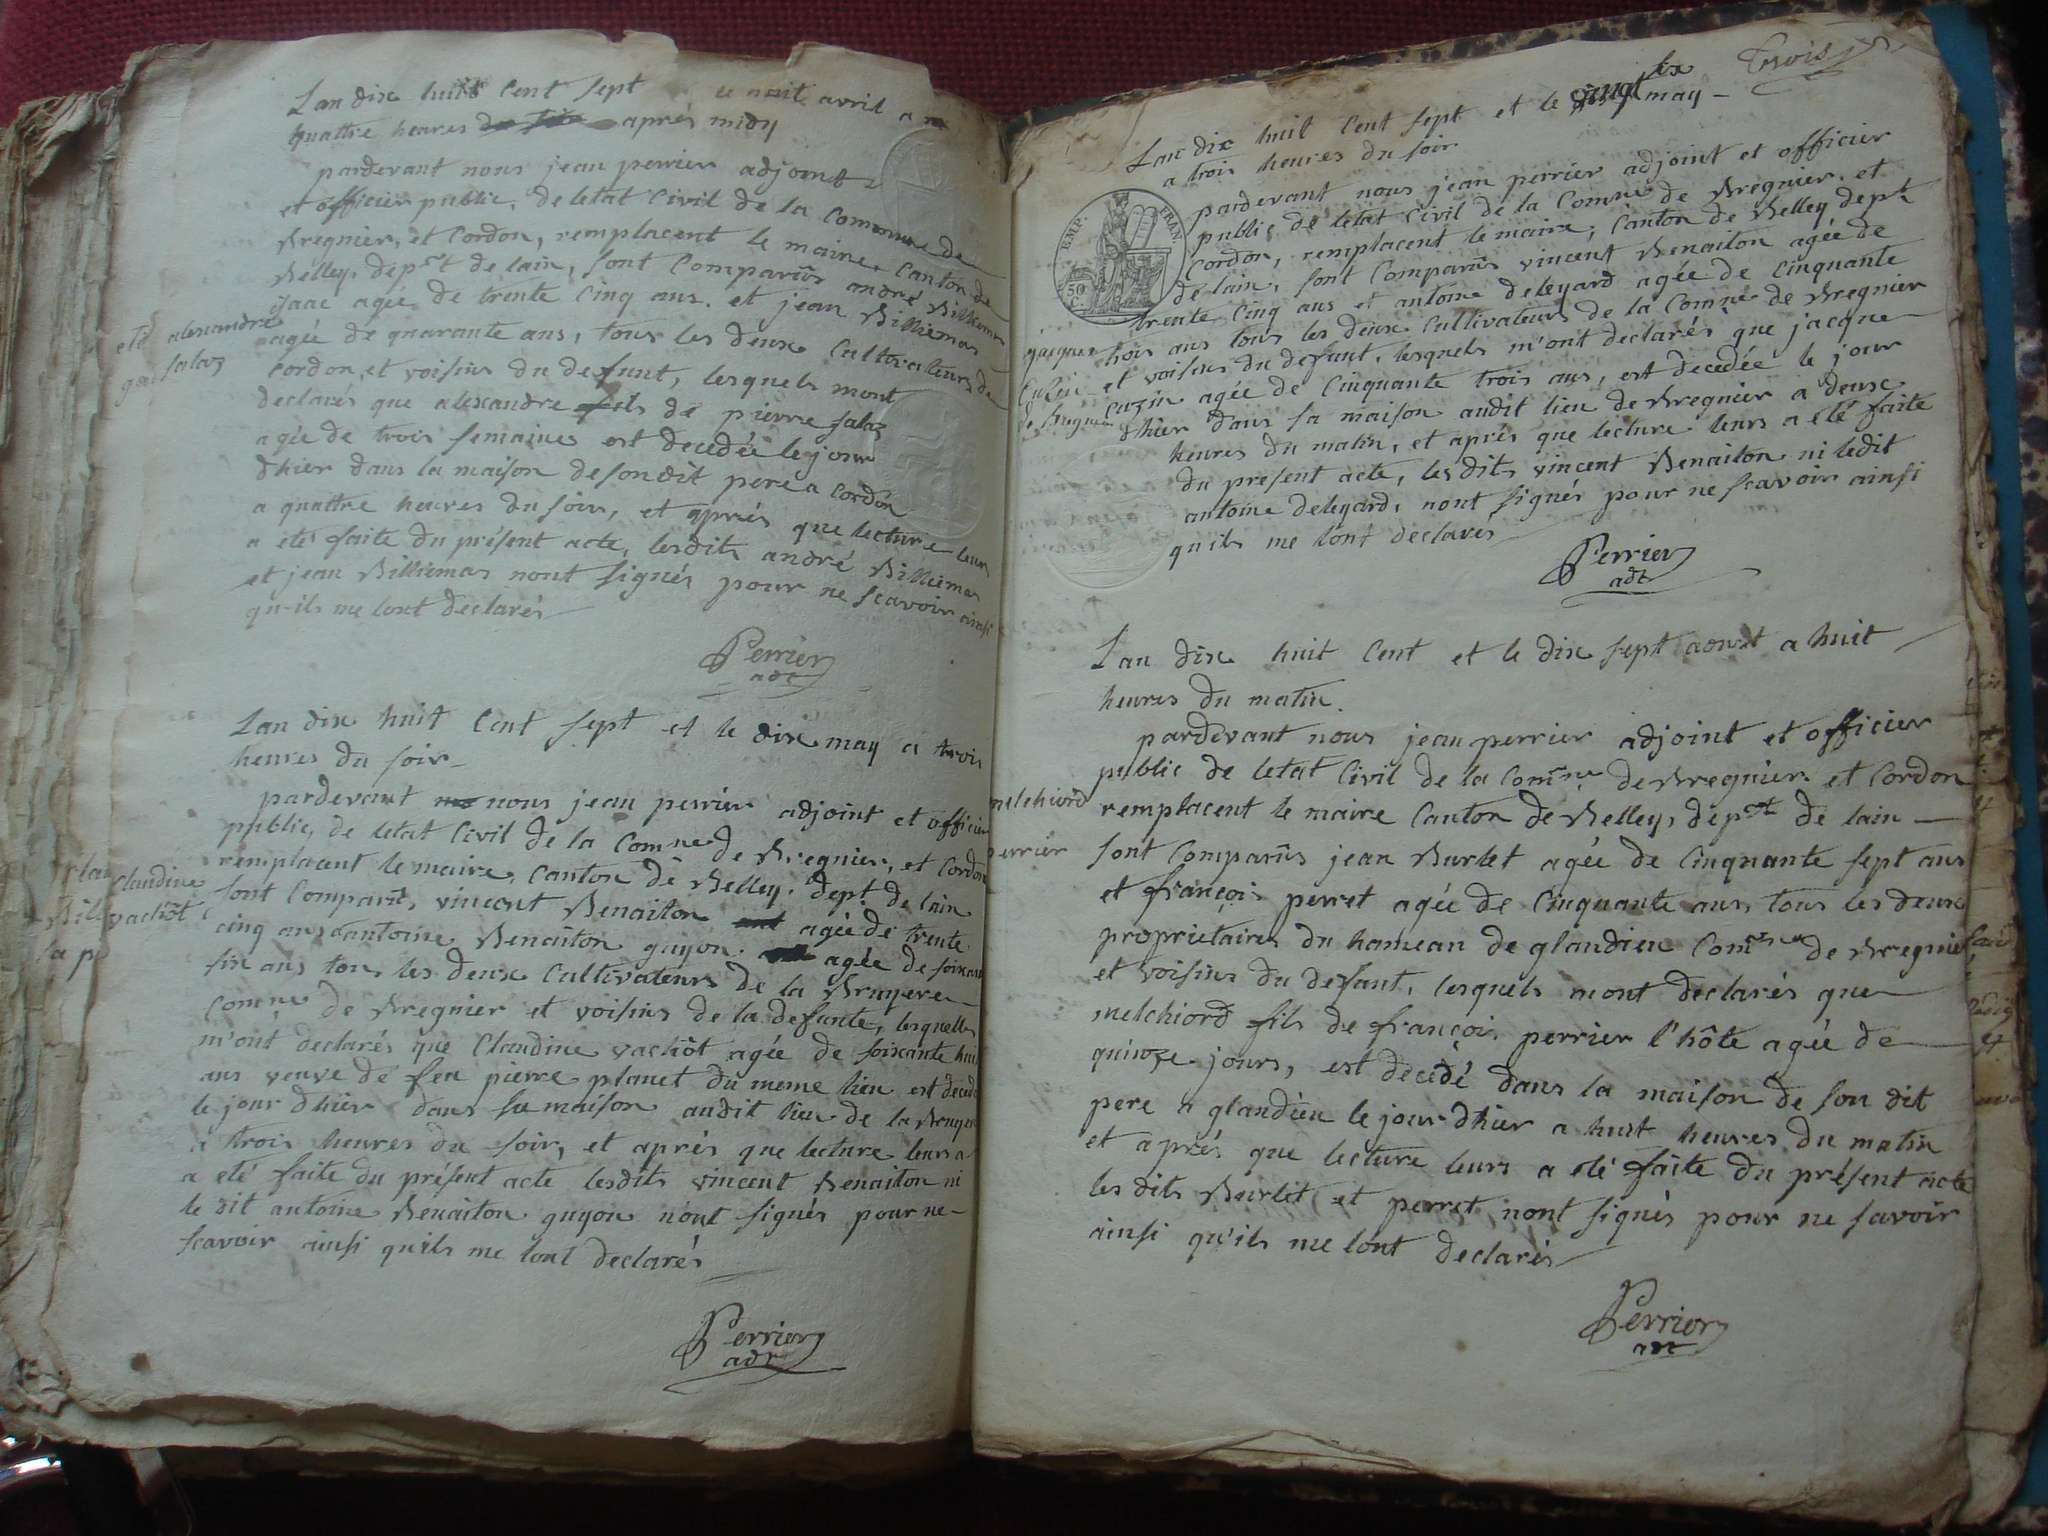 Lan dix huit Cent sept huit avril a
quattre heures après midy
pardevant nous jean perrier adjoint
et officier public, de letat Civil de la Commune de
Bregnier, et Cordon, remplacent le maire, Canton de
Belley, dept de lain, sont Comparûs andré Billiemas
isaac agée de trente Cinq ans. et jean Billiemas
agée de quarante ans, tous les deux Cultivateurs de
Cordon, et voisins du defunt, lesquels mont
declarés que alexandre fils de pierre salaz
agée de trois semaines est decedée le jour
dhier dans la maison de son dit pere a Cordon
a quattre heures du soir, et aprés que lecture leurs
a eté faite du présent acte, lesdits andré Billiemas
et jean Billiemas nont signés pour ne scavoir ainsi
qu-ils me lont declarés
Perrier
adt
alexandre
salaz
Lan dix huit Cent sept et le dix may a trois
heures du soir
pardevant nous jean perrier adjoint et officier
public, de letat Civil de la Comne de Bregnier, et Cordon
remplacent le maire, Canton de Belley, dept. de lain
sont Comparûs, vincent Benaiton agée de trente
cinq ans antoine Benaiton guyon agée de soixante
six ans tous les deux Cultivateurs de la Bruyere
Comne de Bregnier et voisins de la defunte, lesquells
m'ont declarés que Claudine vachôt agée de soixante huit
ans veuve de feu pierre planet du meme lieu est decedée
le jour dhier dans sa maison audit lieu de la Bruyere
a trois heures du soir, et aprés que lecture leurs
a eté faite du présent acte lesdits vincent Benaiton ni
le dit antoine Benaiton guyon n'ont signés pour ne
scavoir ainsi quils me lont declarés
Perrier
adt
Claudine
vachôt
trois
Lan dix huit Cent sept et le may
a trois heures du soir
pardevant nous jean perrier adjoint et officier
public, de letat Civil de la Comne de Bregnier, et
Cordon, remplacent le maire, Canton de Belley dept
de lain, sont Comparûs vincent Benaiton agée de
trente Cinq ans et antoine deleyard agée de Cinquante
trois ans tous les deux Cultivateurs de la Comne de Bregnier
et voisins du defunt, lesquels m'ont declarés que jacque
Cuzin agée de Cinquante trois ans, est decedée le jour
dhier dans sa maison audit lieu de Bregnier a deux
heures du matin, et aprés que lecture leurs a eté faite
du present acte, les dits vincent Benaiton ni ledit
antoine deleyard, nont signés pour ne scavoir ainsi
qu'ils me lont declarés
Perrier
adt
EMP. FRAN.
50 C.
jacques
Cuzin
Lan dix huit Cent et le dix sept aoust a huit
heures du matin.
pardevant nous jean perrier adjoint et officier
public de letat Civil de la Comne de Bregnier et Cordon
remplacent le maire Canton de Belley, dept de lain
sont Comparûs jean Burlet agée de Cinquante sept ans
et françois perret agée de Cinquante ans, tous les deux
proprietaires du hameau de glandieu Comne de Bregnier
et voisins du defunt, lesquels mont declarés que
melchiord fils de françois perrier l'hôte agée de
quinze jours, est decedé dans la maison de son dit
pere a glandieu le jour dhier a huit heures du matin
et aprés que lecture leurs a eté faite du présent acte
les dits Burlet et perret nont signés pour ne savoir
ainsi qu'ils me lont declarés
Perrier
adt
melchiord
perrier